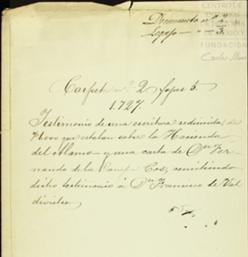 Documento nº 2
Legajo — " — 5.
Carpeta nº 2 legajo 5.
1727
Testimonio de una escritura redimida, de
que estaban sobre la Hacienda
del Alamo = y una carta de Dn Fer-
nando de la Campa Cos, remitiendo
dicho testimonio á Dn Francisco de Val-
divielso
CENTRO
FUNDACIÓN
Carlos Slim